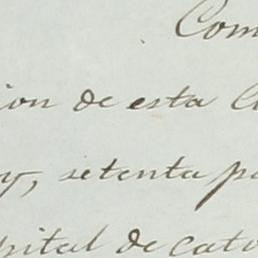 Com
ion de esta C
y, setenta p
pital de cato